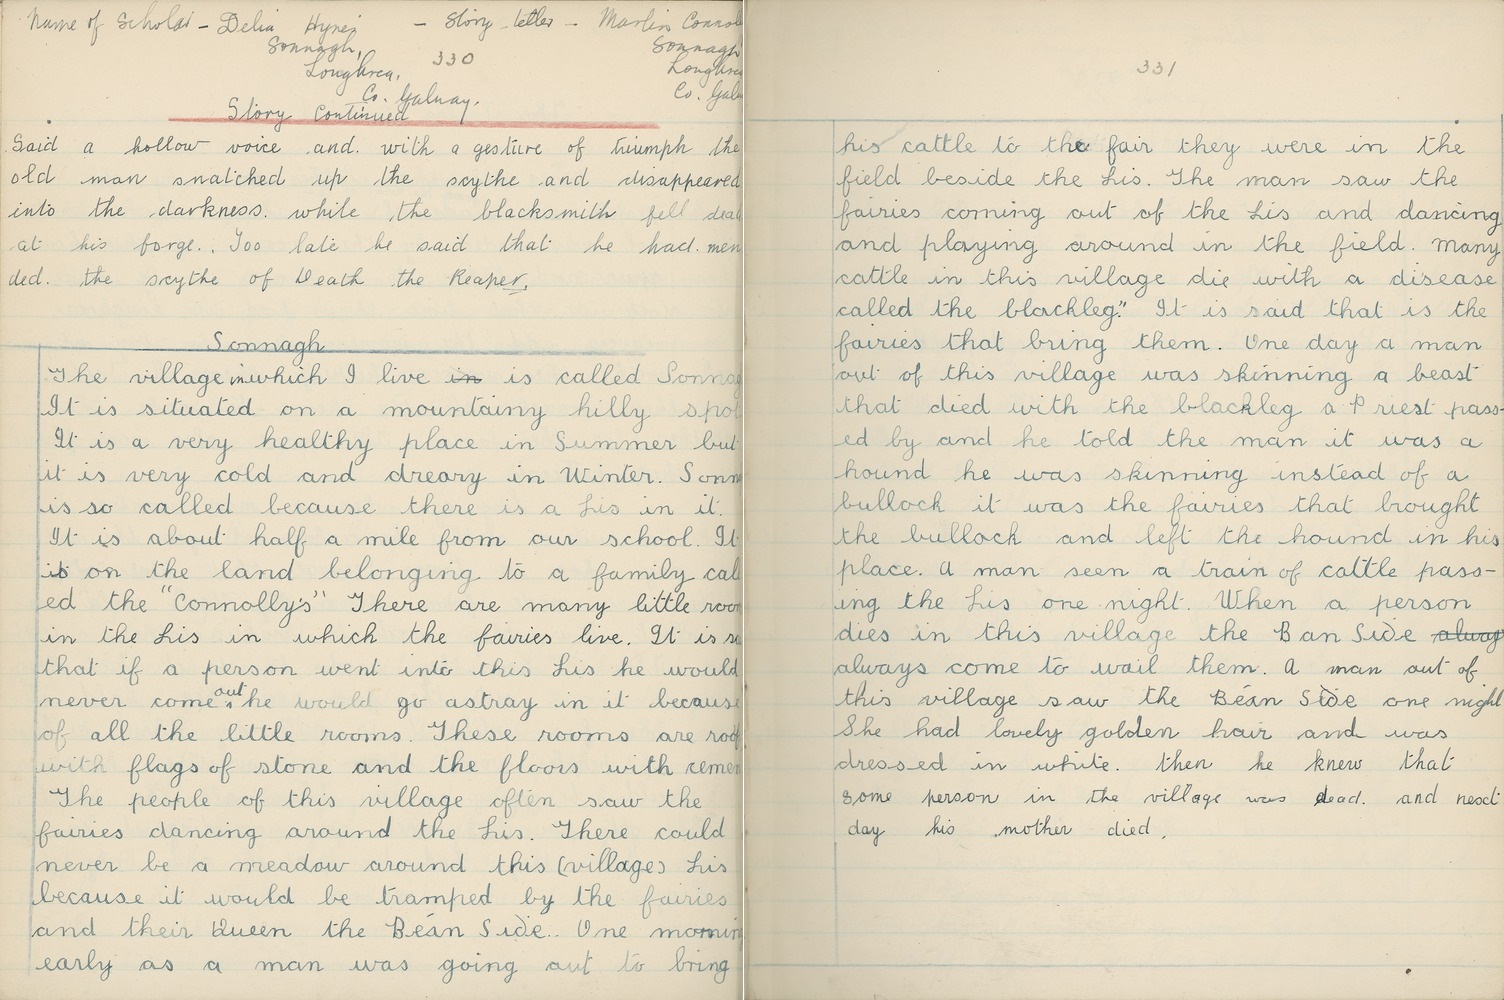 Name of Scholar - Delia Hynes - Story teller - Martin Connol
Sonnagh, Sonnagh
Loughrea, 330 Loughrea
Co. Galway. Co. Galw
Story Continued
Said a hollow voice and. with a gesture of triumph the
old man snatched up the scythe and disappeared
into the darkness. while the blacksmith fell dead
at his forge. Too late he said that he had. men
ded. the scythe of Death the Reaper.
Sonnagh
The village in which I live in is called Sonnag
It is situated on a mountainy hilly spot
It is a very healthy place in Summer but
it is very cold and dreary in Winter. Sonn
is so called because there is a Lis in it.
It is about half a mile from our school. It
is on the land belonging to a family call
ed the "Connolly's" There are many little room
in the Lis in which the fairies live. It is s
that if a person went into this Lis he would
never come out he would go astray in it because
of all the little rooms. These rooms are roof
with flags of stone and the floors with cemen
The people of this village often saw the
fairies dancing around the Lis. There could
never be a meadow around this (village) Lis
because it would be tramped by the fairies
and their Queen the Béan Side.. One mornin
early as a man was going out to bring
331
his cattle to the fair they were in the
field beside the Lis. The man saw the
fairies coming out of the Lis and dancing
and playing around in the field. Many
cattle in this village die with a disease
called the blackleg." It is said that is the
fairies that bring them. One day a man
out of this village was skinning a beast
that died with the blackleg a Priest pass-
ed by and he told the man it was a
hound he was skinning instead of a
bullock it was the fairies that brought
the bullock and left the hound in his
place. A man seen a train of cattle pass-
ing the Lis one night. When a person
dies in this village the Ban Side alway
always come to wail them. A man out of
this village saw the Béan Side one night
She had lovely golden hair and was
dressed in white. then he knew that
some person in the village was dead. and next
day his mother died.